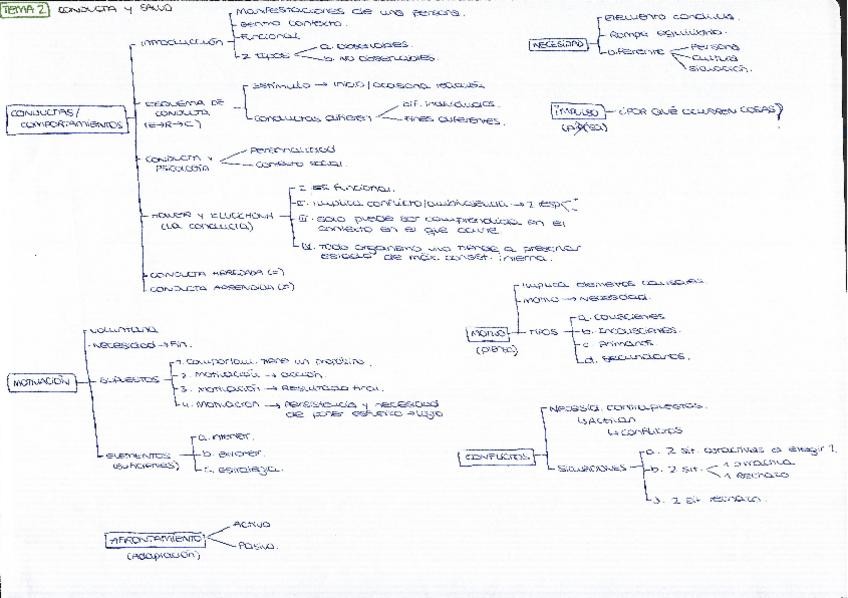 TEMA 2 CONDUCTA Y SALUD
CONDUCTAS/
COMPORTAMIENTOS
INTRODUCCIÓN
MANIFESTACIONES DE UNA PERSONA.
DENTRO CONTEXTO.
FUNCIONAL
2 TIPOS
a. OBSERVABLES.
b. NO OBSERVABLES.
ESQUEMA DE
CONDUCTA
(E→R→C)
ESTÍMULO → INICIO/
CONDUCTAS DIFIEREN
DIF. INDIVIDUALES.
FINES DIFERENTES.
CONDUCTA Y
PSICOLOGÍA
PERSONALIDAD
CONTEXTO SOCIAL.
Y KLUCKHOHN
(LA CONDUCTA)
I. ES FUNCIONAL.
II. IMPLICA CONFLICTO/AMBIVALENCIA → 2
III. SOLO PUEDE SER COMPRENDIDA EN EL
CONTEXTO EN EL QUE OCURRE.
IV. TODO ORGANISMO VIVO TIENDE A PRESERVAR
ESTADO DE MÁX. CONST. INTERNA.
CONDUCTA HEREDADA (=)
CONDUCTA APRENDIDA (≠)
NECESIDAD
ELEMENTO CONDUCTA.
ROMPE EQUILIBRIO.
DIFERENTE
PERSONA
CULTURA
SITUACIÓN.
IMPULSO
¿POR QUÉ OCURREN COSAS?
MOTIVO
IMPLICA ELEMENTOS CAUSALES.
MOTIVO → NECESIDAD.
TIPOS
a. CONSCIENTES
b. INCONSCIENTES.
c. PRIMARIOS
d. SECUNDARIOS.
MOTIVACIÓN
VOLUNTARIA
NECESIDAD → FIN.
SUPUESTOS
1. COMPORTAM. TIENE UN PROPÓSITO.
2. MOTIVACIÓN → ACCIÓN.
3. MOTIVACIÓN → RESULTADO FINAL.
4. MOTIVACIÓN → PERSISTENCIA Y NECESIDAD
DE PONER ESFUERZO
ELEMENTOS
(FUNCIONES)
a.
b.
c. ESTRATEGIA.
CONFLICTOS
NECESID. CONTRAPUESTAS.
↳ ACTÚAN
↳ CONFLICTOS
SITUACIONES
a. 2 SIT. ATRACTIVAS ELEGIR 1.
b. 2 SIT.
1 ATRACTIVA
1 RECHAZO
3. 2 SIT. RECHAZO.
AFRONTAMIENTO
(ADAPTACIÓN)
ACTIVO
PASIVO.